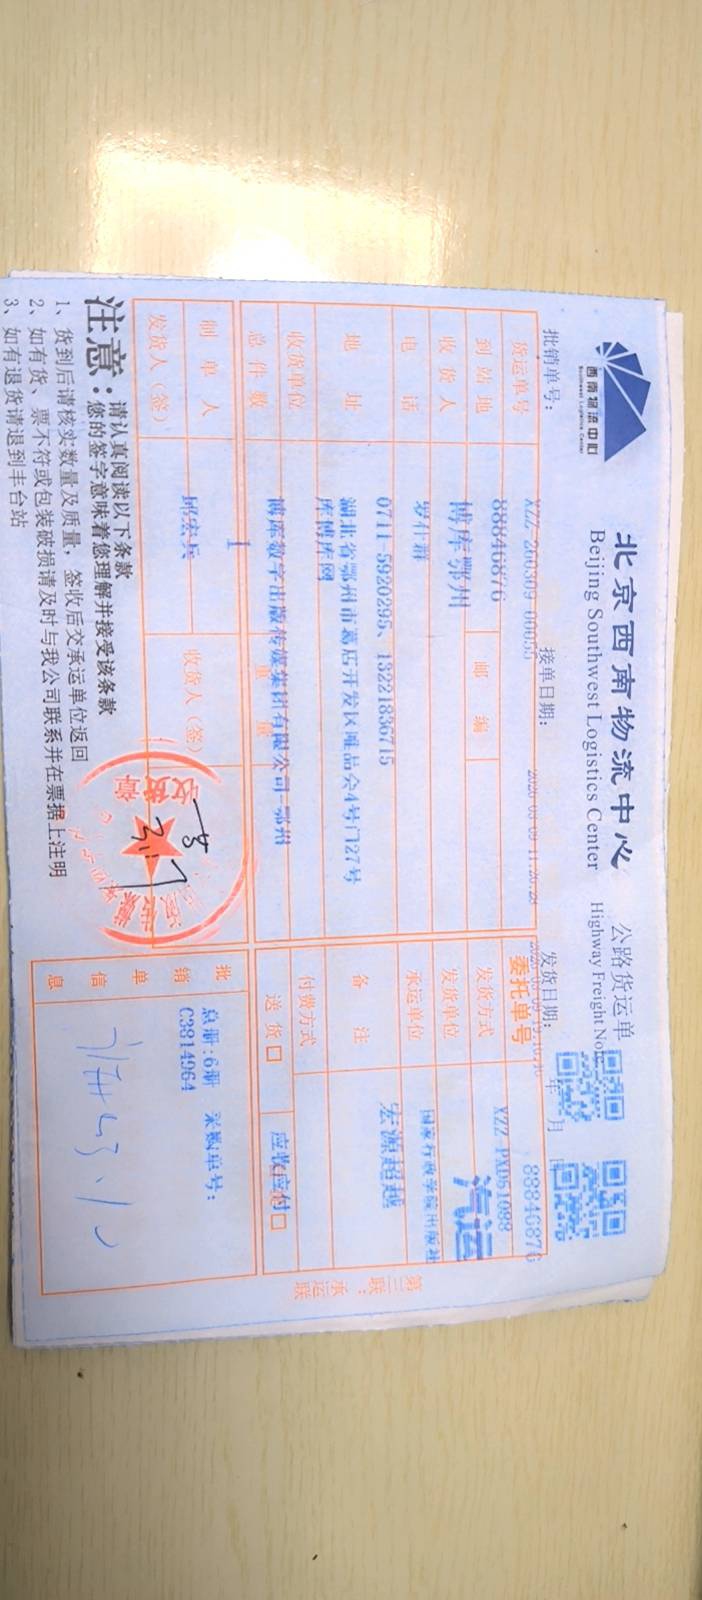 西南物流中心
Southwest Logistics Center
北京西南物流中心 公路货运单
Beijing Southwest Logistics Center Highway Freight Note
批销单号: XZZ-260309-00055 接单日期: 发货日期: 年 月 日
货运单号 88846876 委托单号 88846876
到站地 博库鄂州 邮编 发货方式 XZZ-PXD51088 汽运
收货人 罗仕群 发货单位 国家行政学院出版社
电话 0711-5920295、13221836715 承运单位 宏源超越
地址 湖北省鄂州市葛店开发区唯品会4号门27号
库博库网
备注
收货单位 博库数字出版传媒集团有限公司-鄂州 付费方式
总件数 1 重量 送货□ 应收应付□
制单人 邱宏兵 收货人(签)
发货人(签)
收货章
批销单信息
总册:6册 采购单号:
C3814964
第三联:承运联
注意:
请认真阅读以下条款
您的签字意味着您理解并接受该条款
1、货到后请核实数量及质量,签收后交承运单位返回
2、如有货、票不符或包装破损请及时与我公司联系并在票据上注明
3、如有退货请退到丰台站